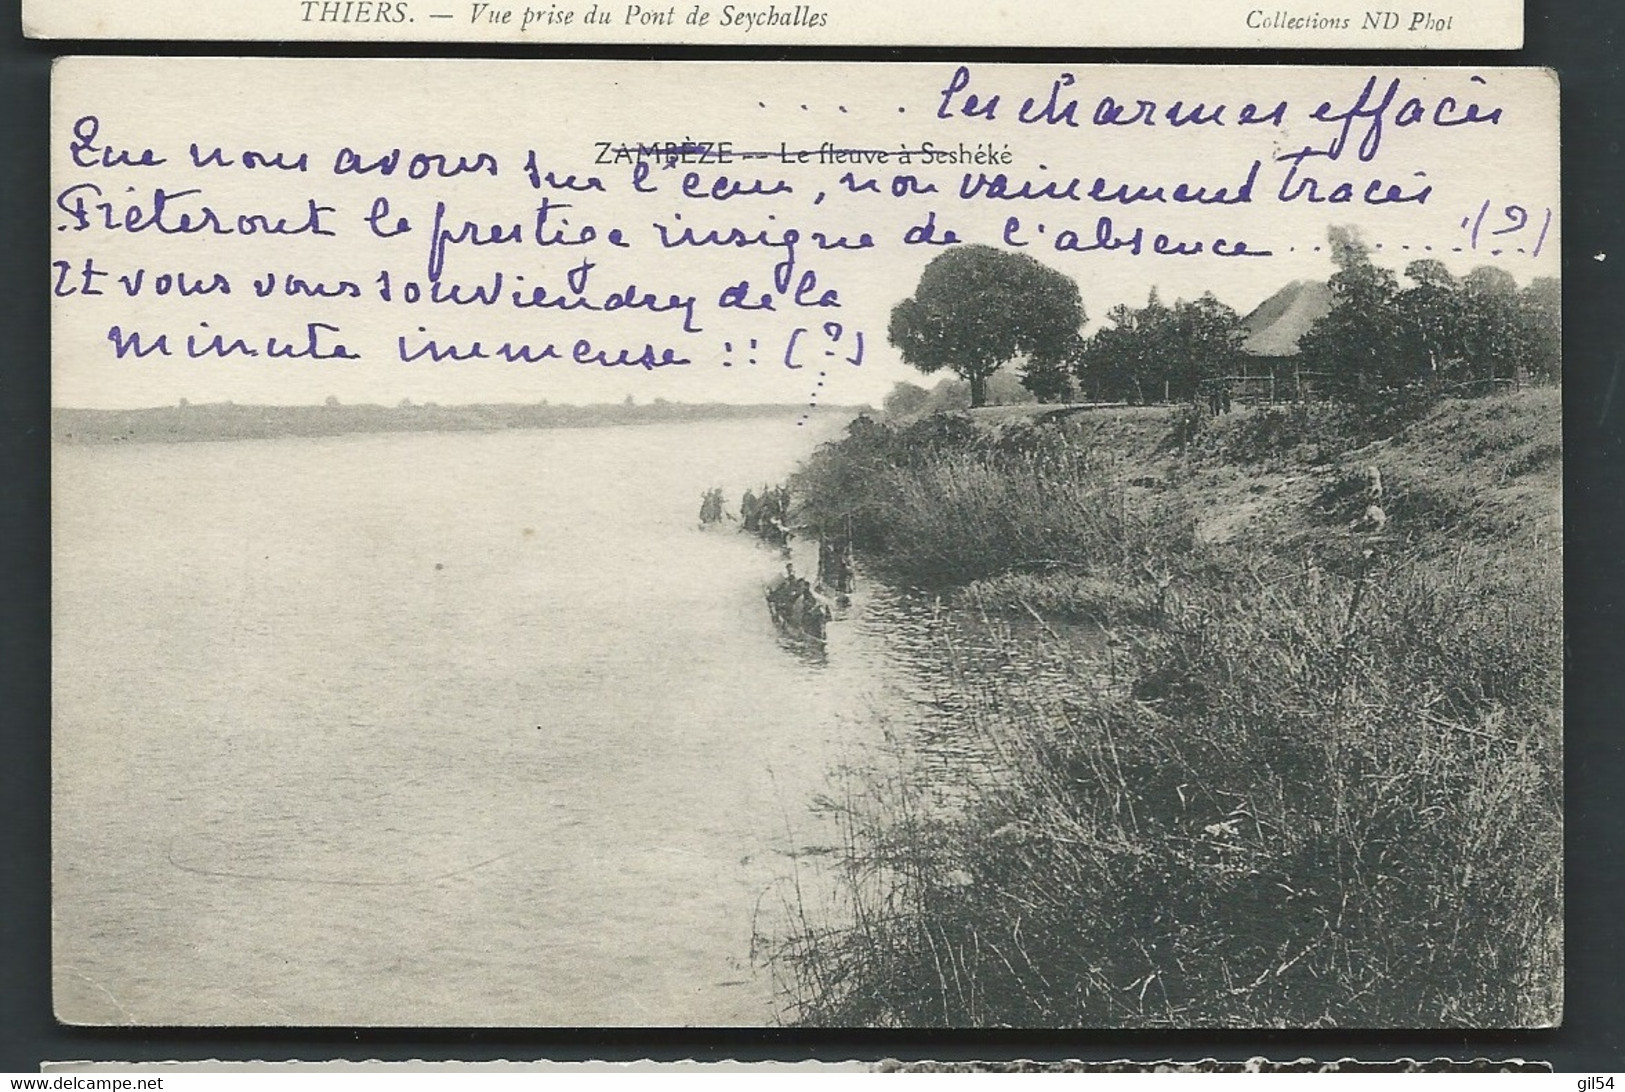 THIERS. — Vue prise du Pont de Seychalles
Collections ND Phot
. . . . . les charmes effacés
ZAMBÈZE -- Le fleuve à Seshéké
Que nous avons sur l'eau, non vainement tracés
Prêteront le prestige insigne de l'absence ........!(?)
Et vous vous souviendrez de la
minute immense !! (?)
www.delcampe.net
gil54